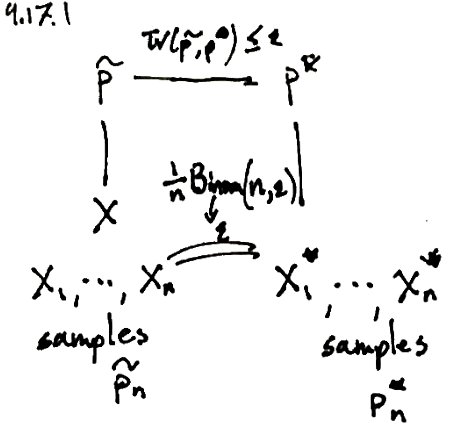 4.17.1
TV(p̃, p*) ≤ ε
p̃ → p*
1/n Binom(n, ε)
↓
X ε
X₁, ..., Xₙ ⇒ X₁*, ..., Xₙ*
samples samples
p̃ₙ pₙ*